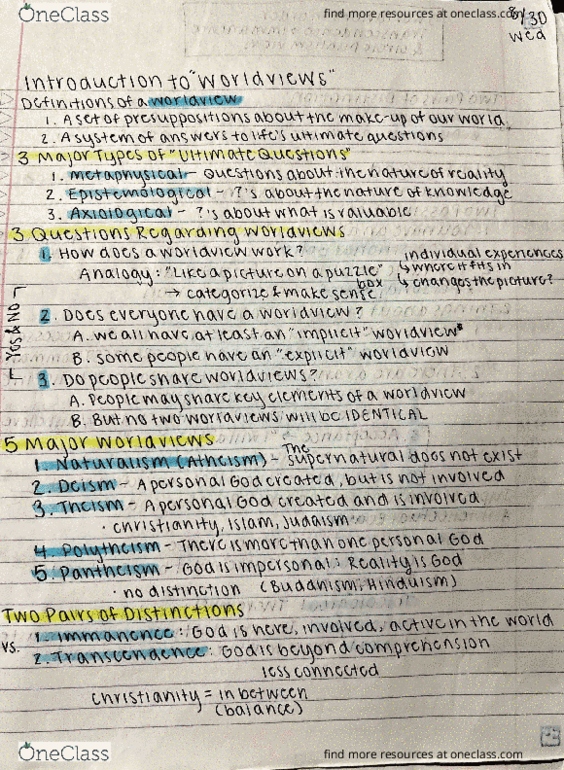 OneClass
find more resources at oneclass.com
8/30
Wed
Introduction to "Worldviews"
Definitions of a worldview
1. A set of presuppositions about the make-up of our world.
2. A system of answers to life's ultimate questions
3 Major Types of "Ultimate Questions"
1. Metaphysical - Questions about the nature of reality
2. Epistemological - ?'s about the nature of knowledge
3. Axiological - ?'s about what is valuable
3 Questions Regarding Worldviews
1. How does a worldview work?
Analogy: "Like a picture on a puzzle box"
individual experiences
↳ where it fits in
↳ changes the picture?
→ categorize & make sense
Yes & No
2. Does everyone have a worldview?
A. we all have at least an "implicit" worldview
B. some people have an "explicit" worldview
3. Do people share worldviews?
A. People may share key elements of a worldview
B. But no two worldviews will be IDENTICAL
5 Major Worldviews
1. Naturalism (Atheism) - The supernatural does not exist
2. Deism - A personal God created, but is not involved
3. Theism - A personal God created and is involved
· christianity, Islam, Judaism
4. Polytheism - There is more than one personal God
5. Pantheism - God is impersonal: Reality is God
· no distinction (Buddhism, Hinduism)
Two Pairs of Distinctions
1. Immanence: God is here, involved, active in the world
vs.
2. Transcendence: God is beyond comprehension
less connected
christianity = in between
(balance)
OneClass
find more resources at oneclass.com